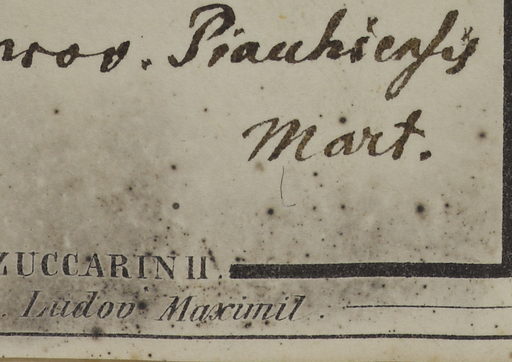 prov. Piauhiensis
Mart.
ZUCCARINII.
. Ludov Maximil .